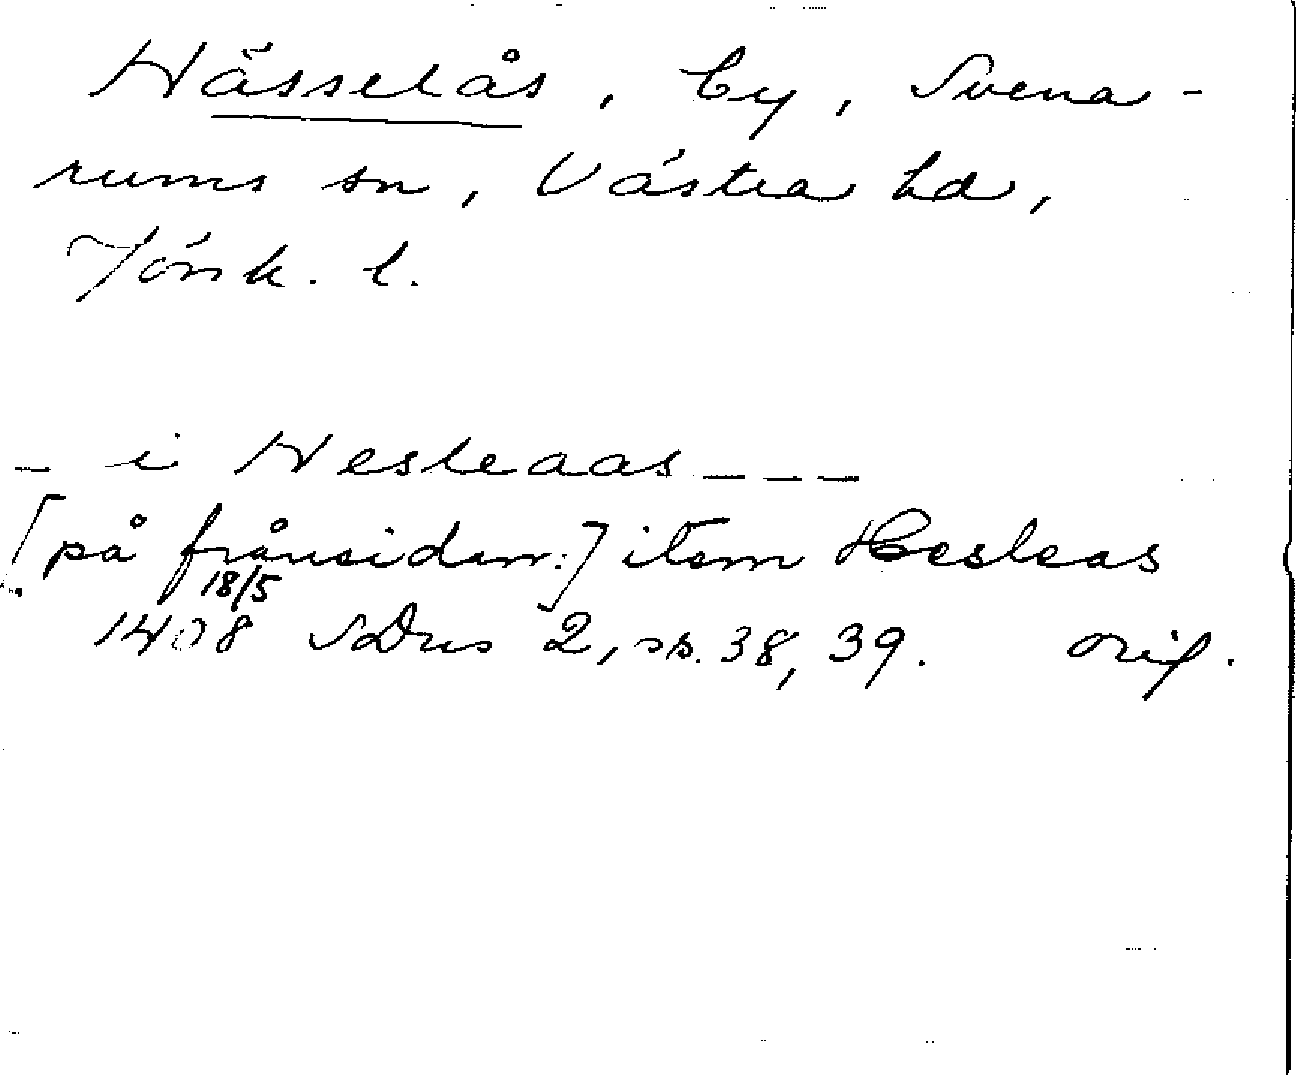 Hässelås, by, Svena-
rums sn, Västra hd,
Jönk. l.
- i Hesleaas - - -
[på frånsidan:] item Hesleas
18/5
1408 SDns 2, ss. 38, 39. orig.